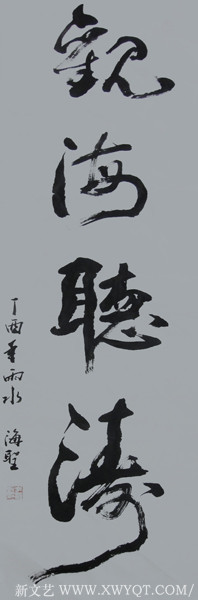 觀海聽濤
丁酉年雨水
海聖
新文艺 WWW.XWYQT.COM/